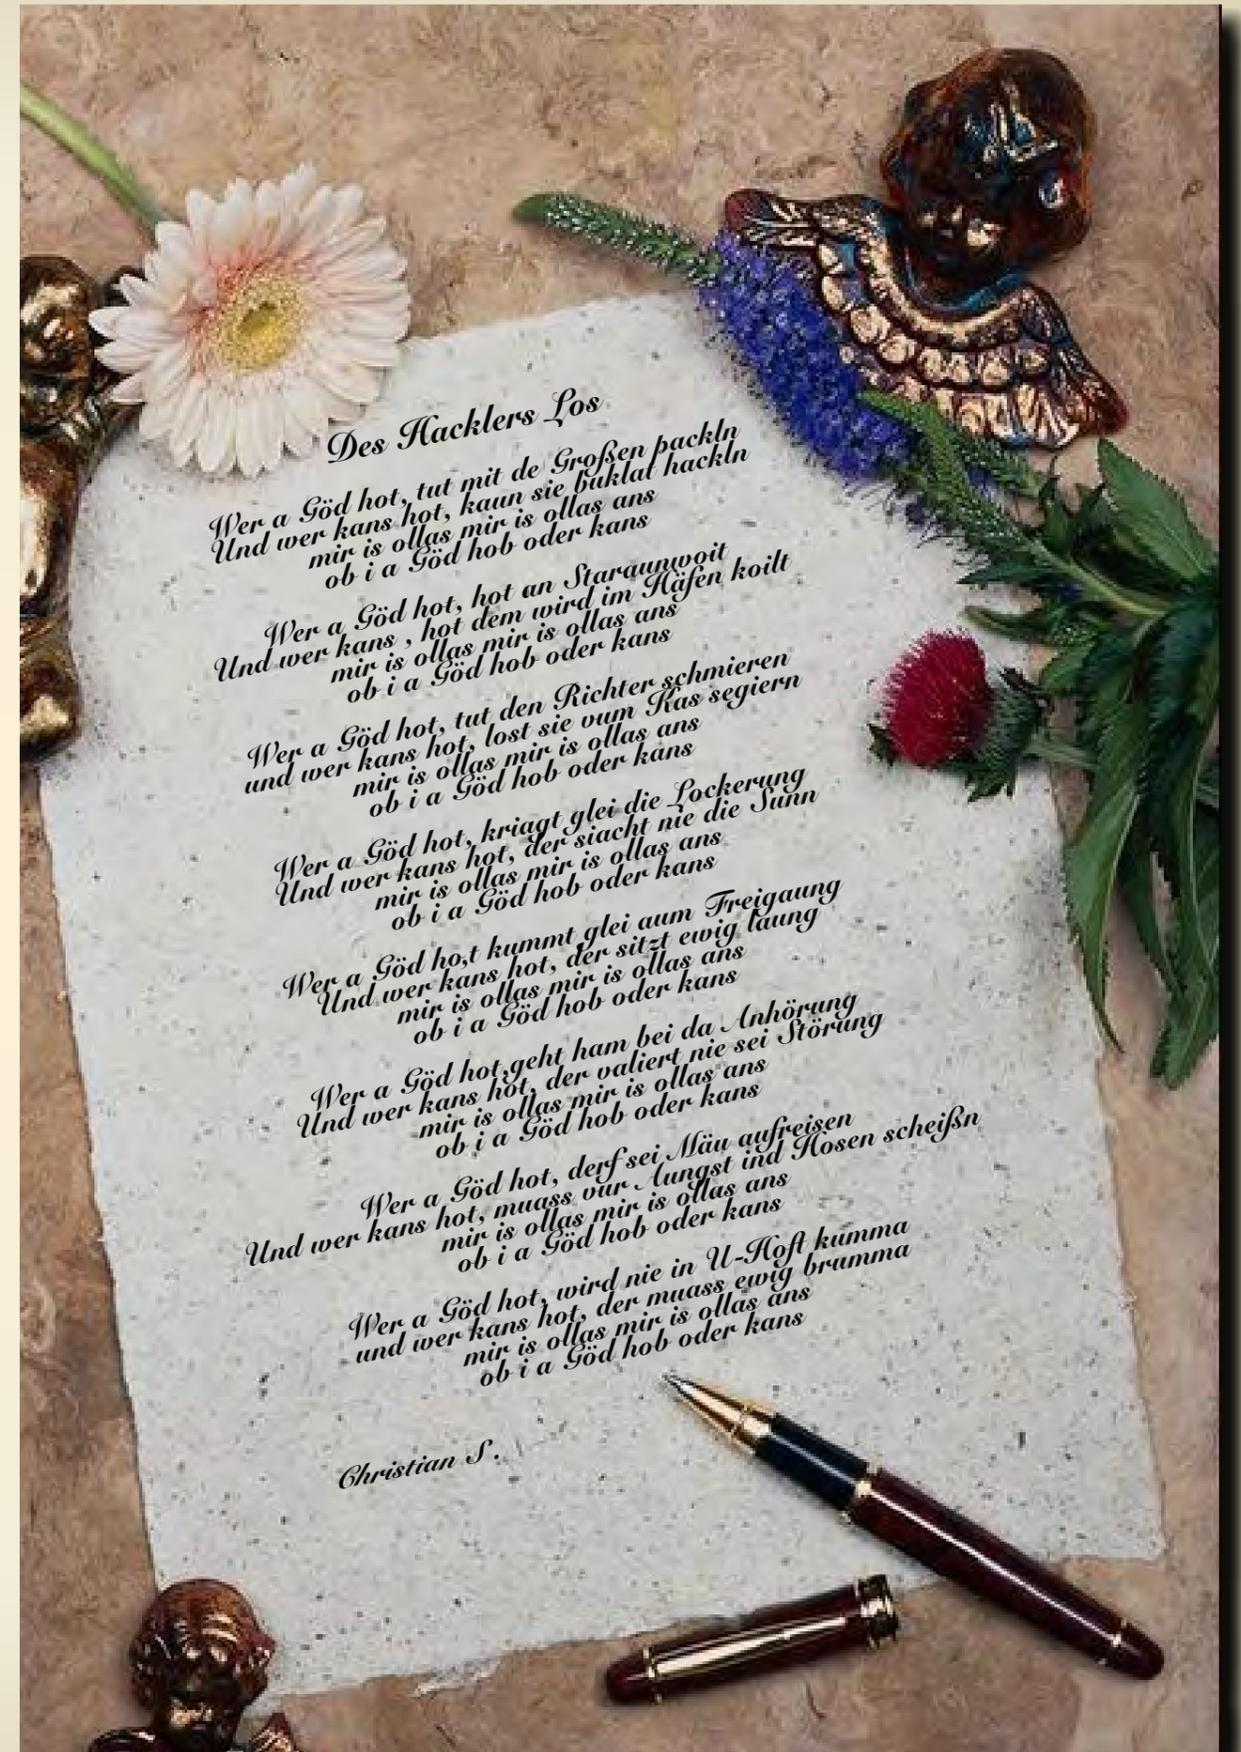 Des Hacklers Los
Wer a Göd hot, tut mit de Großen packln
Und wer kans hot, kaun sie buklat hackln
mir is ollas mir is ollas ans
ob i a Göd hob oder kans
Wer a Göd hot, hot an Staraunwoit
Und wer kans , hot dem wird im Häfen koilt
mir is ollas mir is ollas ans
ob i a Göd hob oder kans
Wer a Göd hot, tut den Richter schmieren
und wer kans hot, lost sie vum Kas segiern
mir is ollas mir is ollas ans
ob i a Göd hob oder kans
Wer a Göd hot, kriagt glei die Lockerung
Und wer kans hot, der siacht nie die Sunn
mir is ollas mir is ollas ans
ob i a Göd hob oder kans
Wer a Göd ho,t kummt glei aum Freigaung
Und wer kans hot, der sitzt ewig laung
mir is ollas mir is ollas ans
ob i a Göd hob oder kans
Wer a Göd hot,geht ham bei da Anhörung
Und wer kans hot, der valiert nie sei Störung
mir is ollas mir is ollas ans
ob i a Göd hob oder kans
Wer a Göd hot, derf sei Mäu aufreisen
Und wer kans hot, muass vur Aungst ind Hosen scheißn
mir is ollas mir is ollas ans
ob i a Göd hob oder kans
Wer a Göd hot, wird nie in U-Hoft kumma
und wer kans hot, der muass ewig brumma
mir is ollas mir is ollas ans
ob i a Göd hob oder kans
Christian S.